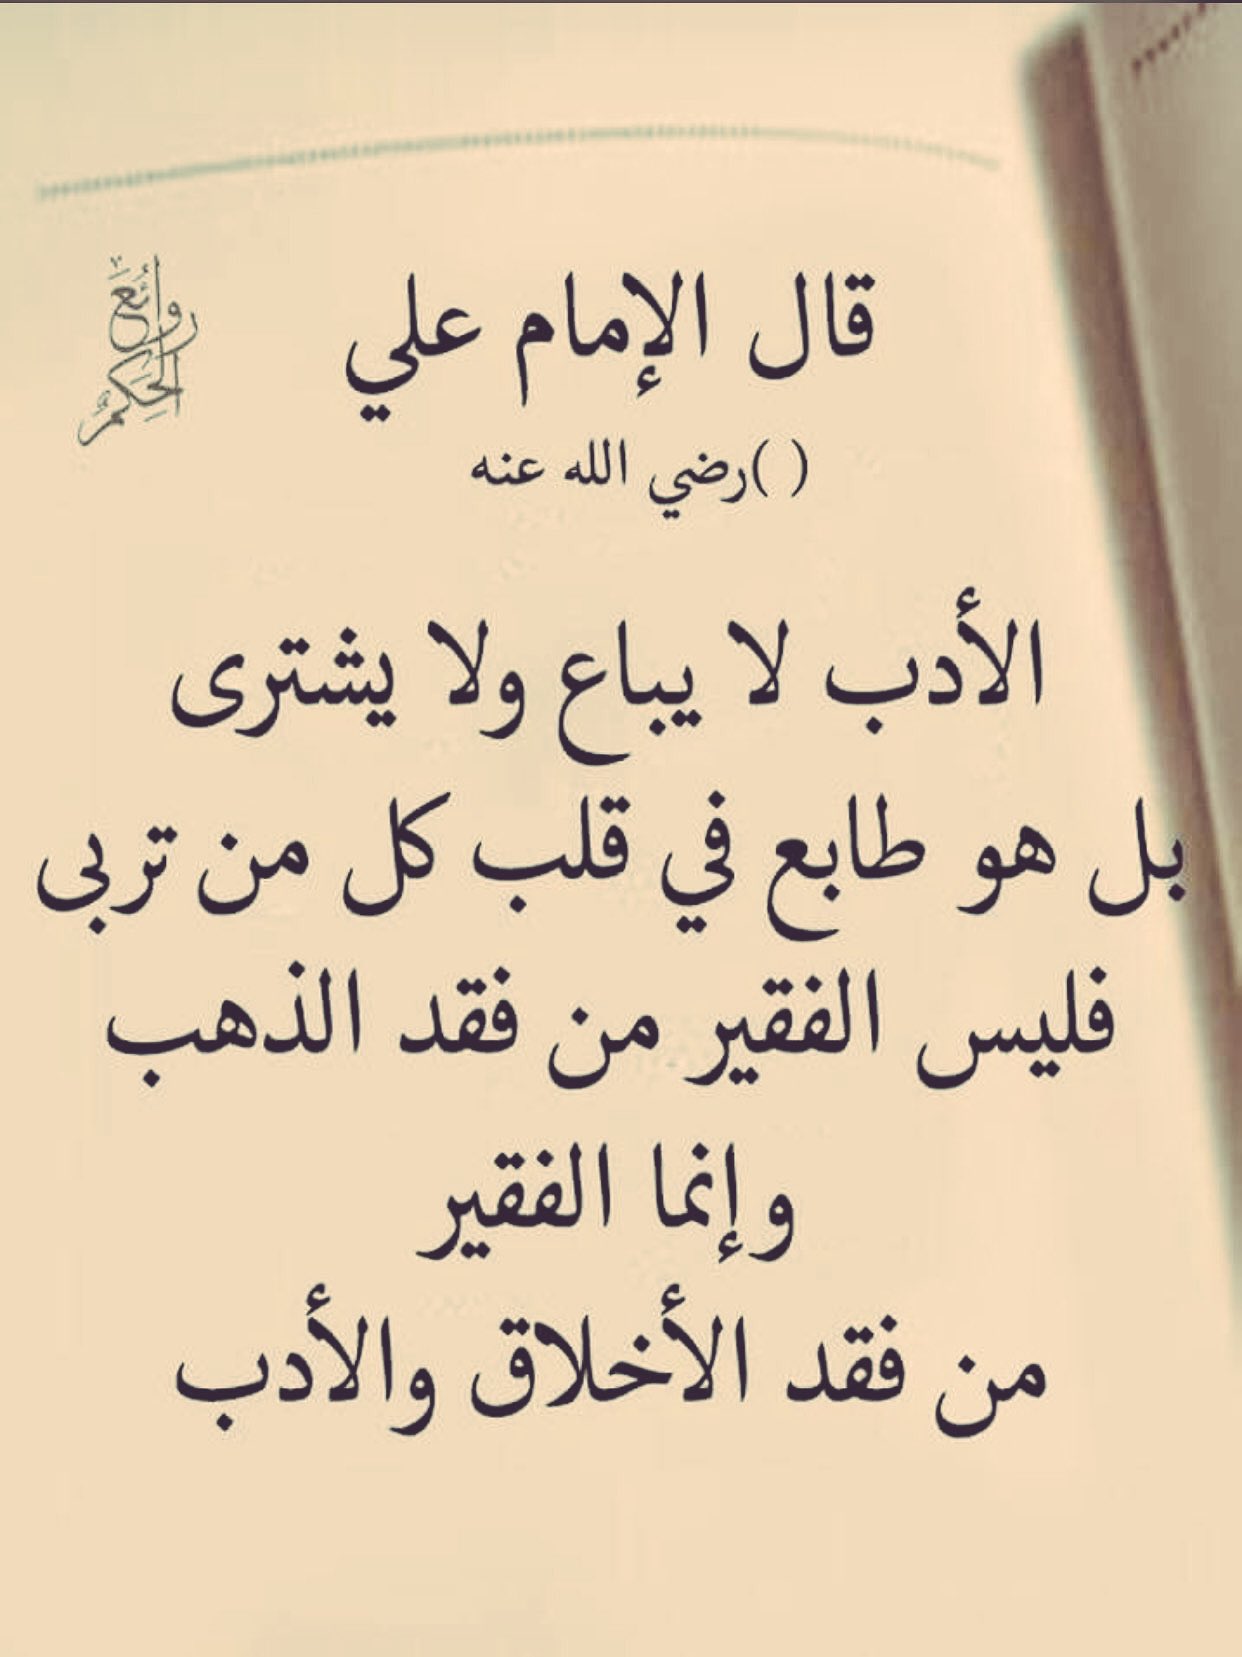 قال الإمام علي
( )رضي الله عنه
روائع
الحكم
الأدب لا يباع ولا يشترى
بل هو طابع في قلب كل من تربى
فليس الفقير من فقد الذهب
وإنما الفقير
من فقد الأخلاق والأدب